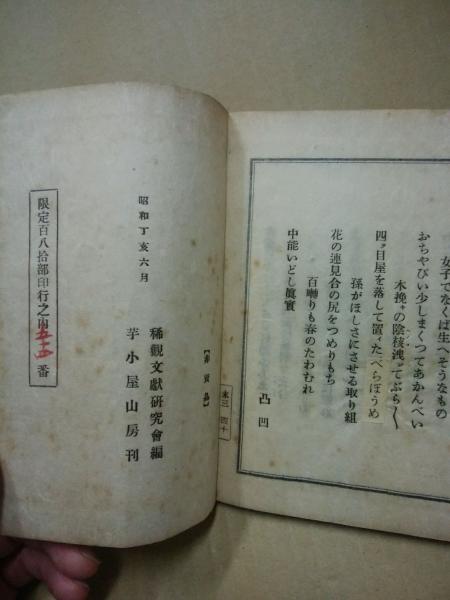 女子でなくば生へそうなもの
おちやぴい少しまくつてあかんべい
木挽の陰核洩つてぶら〱
四ツ目屋を落して置いたべらぼうめ
孫がほしさにさせる取り組
花の連見合の尻をつめりもち
百囀りも春のたわむれ
中能いどし眞實
凸凹
末三 四十
昭和丁亥六月
稀覯文獻研究會編
芋小屋山房刊
限定百八拾部印行之内
番